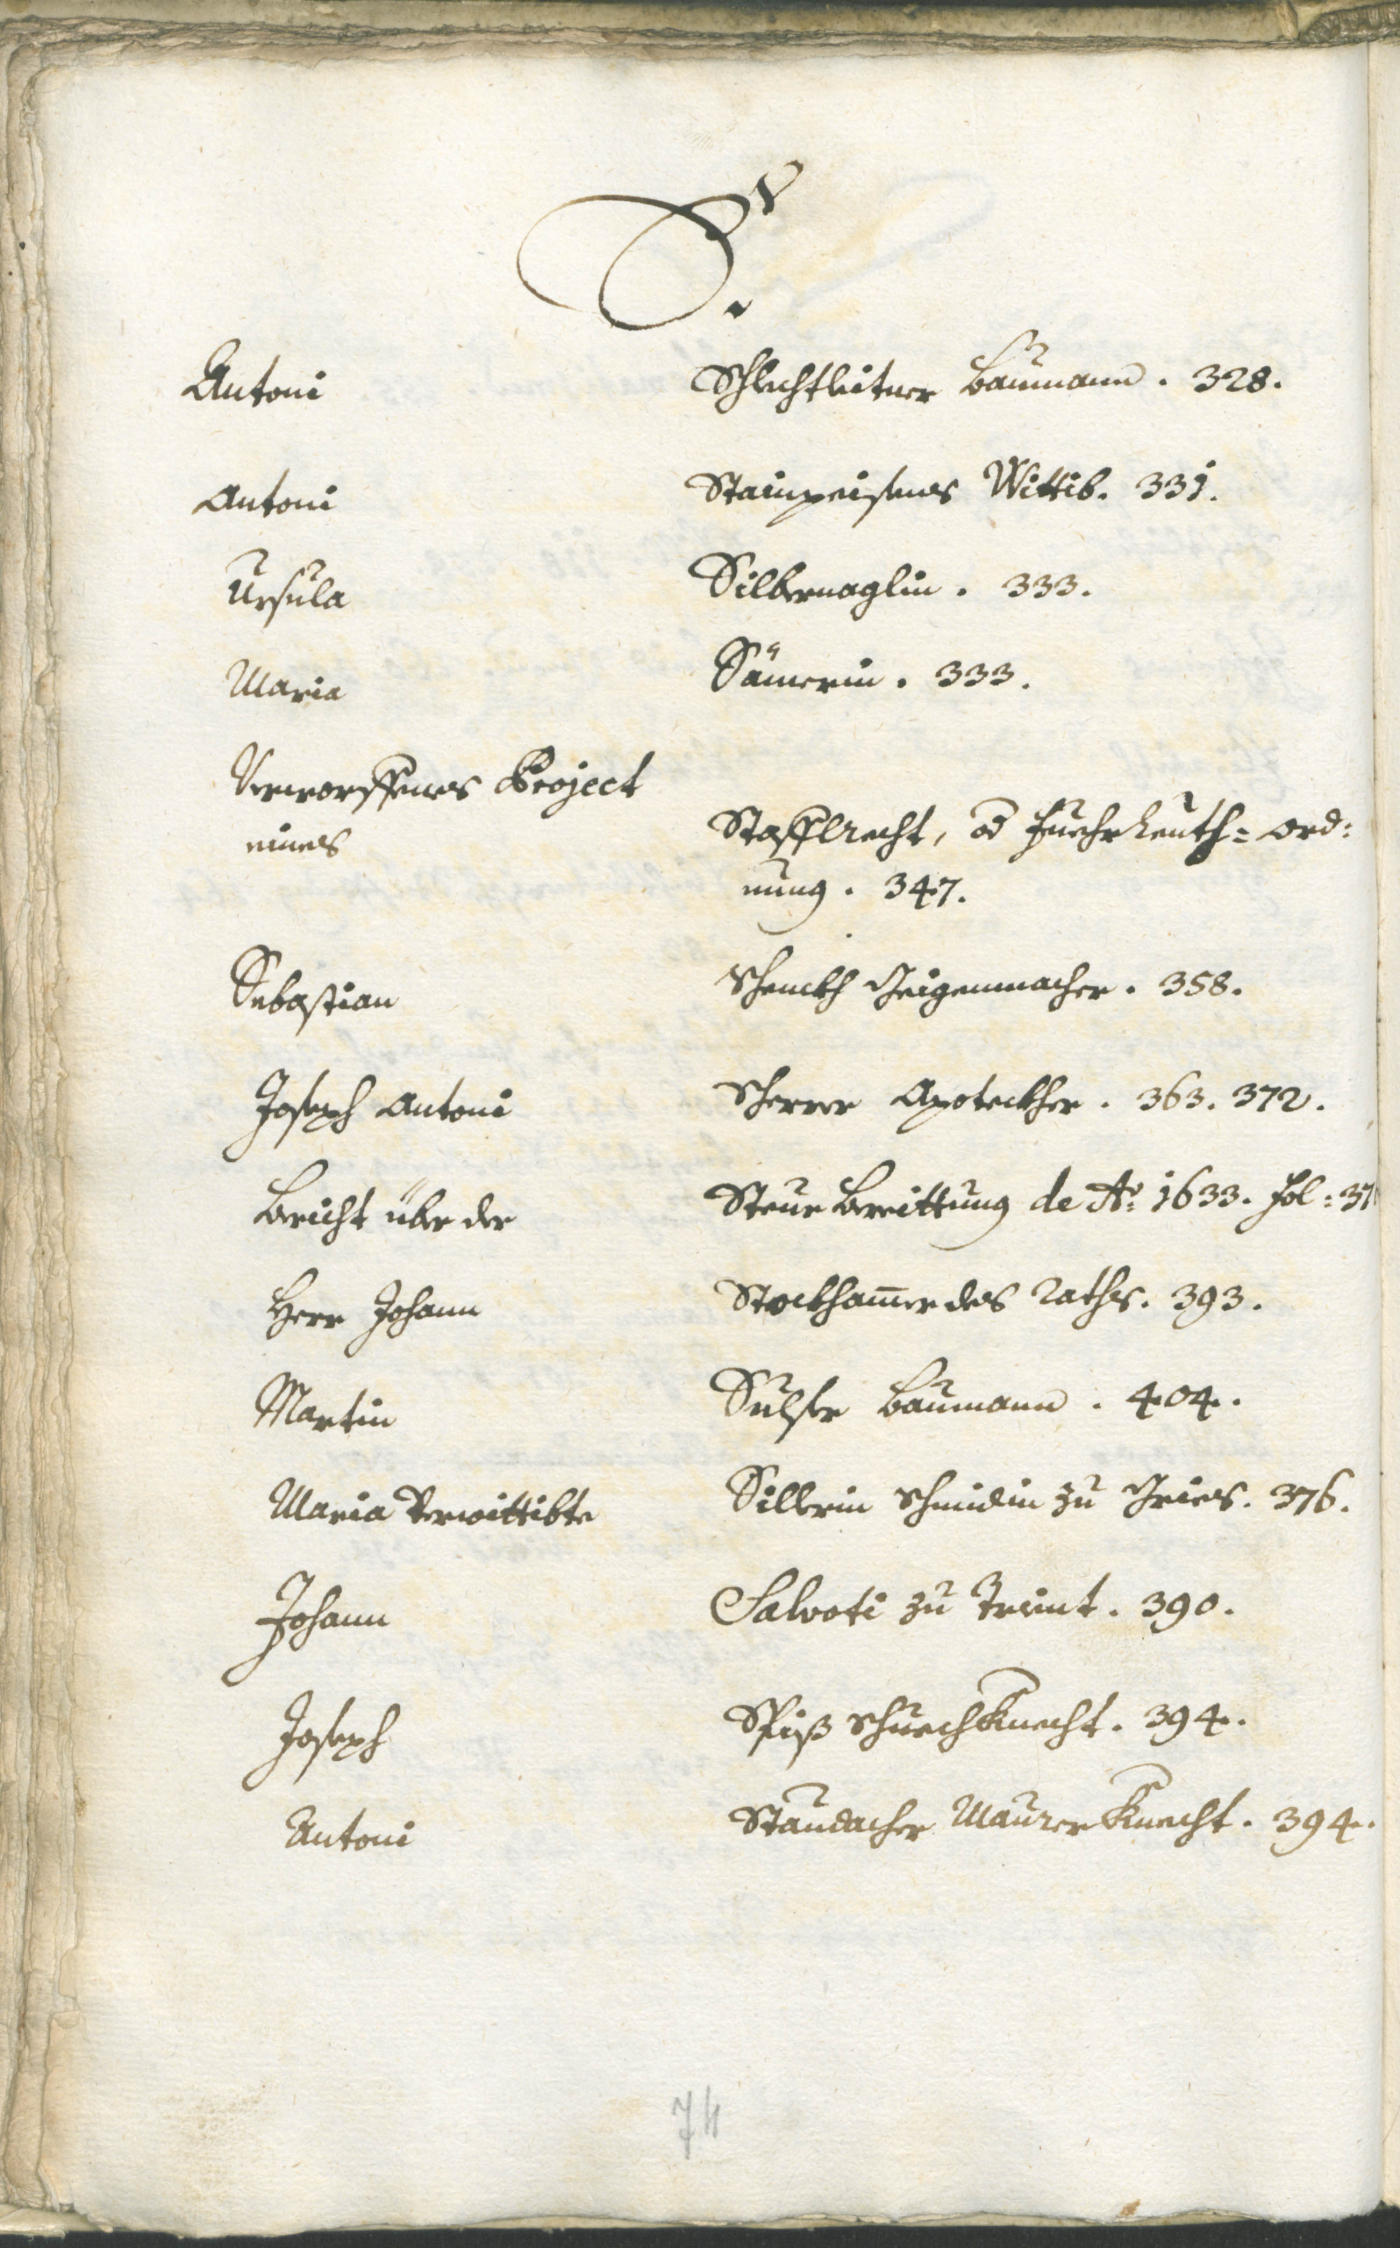 S.
Antoni Schlechtleitner Baumann. 328.
Antoni Stainpeißens Wittib. 331.
Ursula Silbernaglin. 333.
Maria Sämerin. 333.
Verworffenes Project
eines Stafflrecht, od Fuehrleuth= Ord:
nung. 347.
Sebastian Schenckh Geigenmacher. 358.
Joseph Antoni Scherer Apoteckher. 363. 372.
Bericht über der Steur Bereittung de Aº: 1633. fol: 37
Herr Johann Stockhamer des Raths. 393.
Martin Sulser Baumann. 404.
Maria Verwittibte Sillerin Schmidin zu Gries. 376.
Johann Salvoti zu Trient. 390.
Joseph Spiß Schuechknecht. 394.
Antoni Staudacher Maurer Knecht. 394.
74